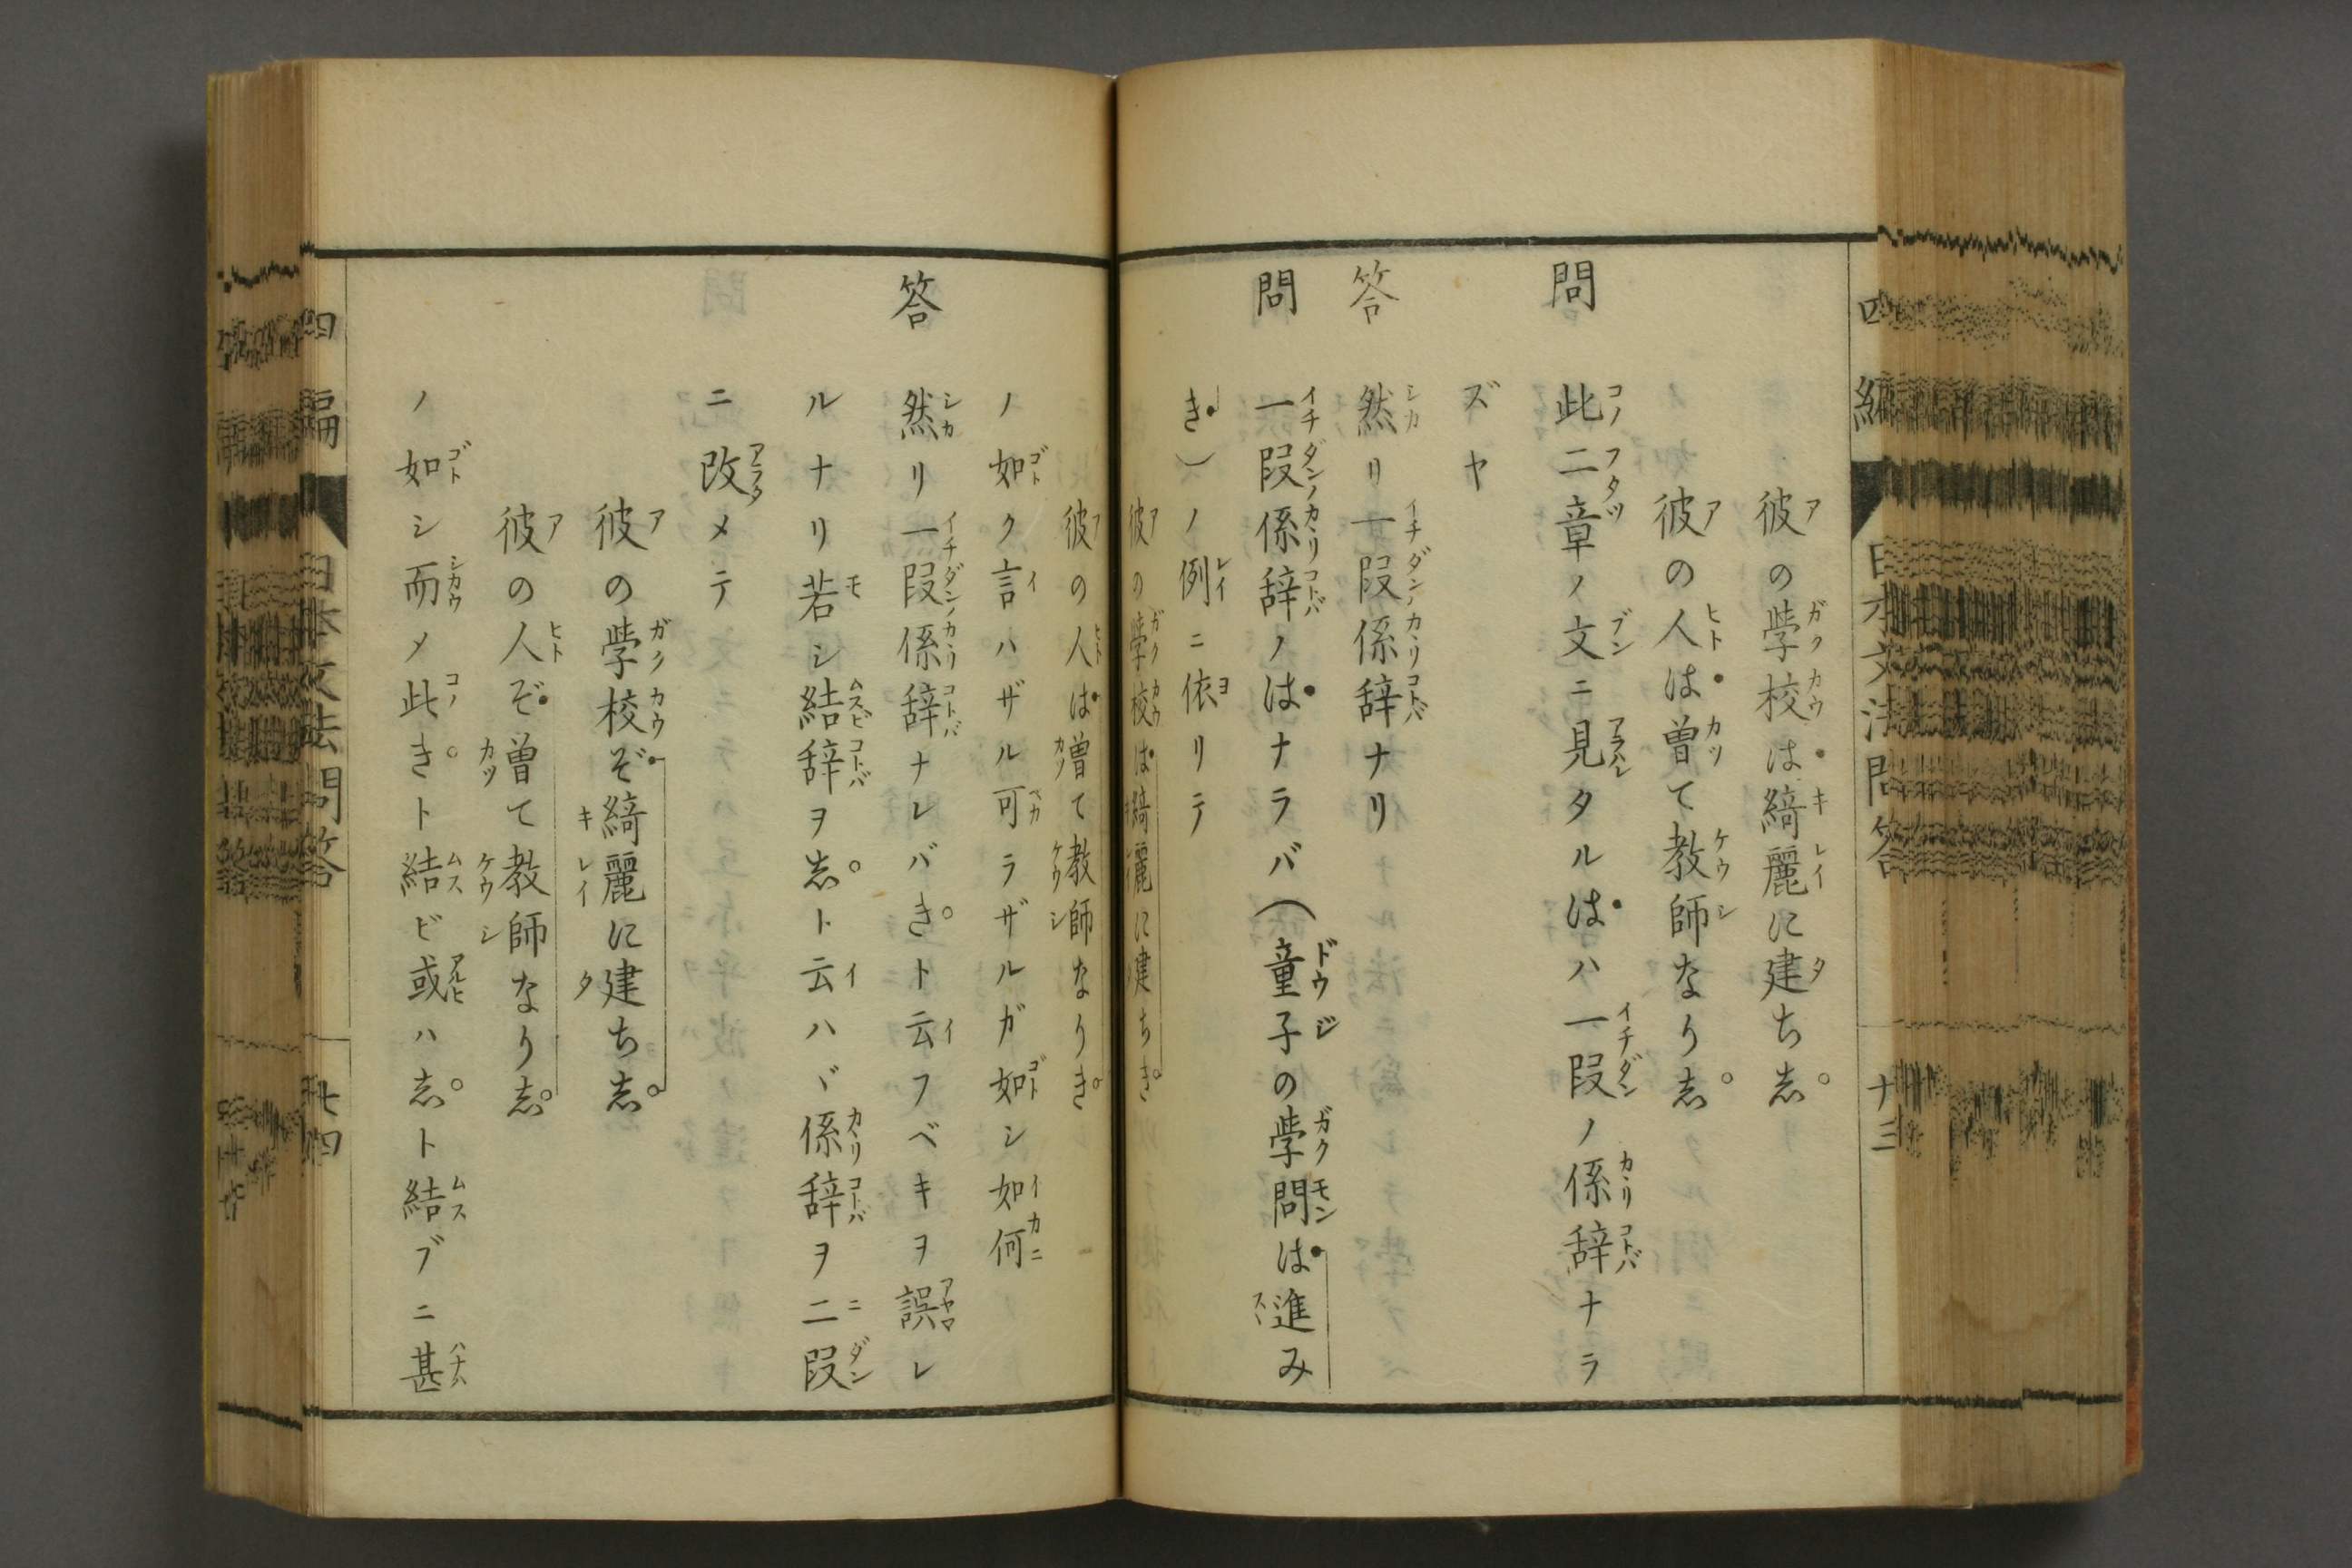 彼の學校は綺麗に建ち志
彼の人は曽て教師なり志
問 此二章ノ文ニ見タルはハ一段ノ係辞ナラ
ズヤ
答 然リ一段係辞ナリ
問 一段係辞ノはナラバ(童子の學問は進み
き)ノ例ニ依リテ
彼の學校は綺麗に建ちき
彼の人は曽て教師なりき
ノ如ク言ハザル可ラザルガ如シ如何
答 然リ一段係辞ナレバきト云フベキヲ誤レ
ルナリ若シ結辞ヲ志ト云ハヾ係辞ヲ二段
ニ改メテ
彼の學校ぞ綺麗に建ち志
彼の人ぞ曽て教師なり志
ノ如シ而メ此きト結ビ或ハ志ト結ブニ甚
四編 日本文法問答 十三
四編 日本文法問答